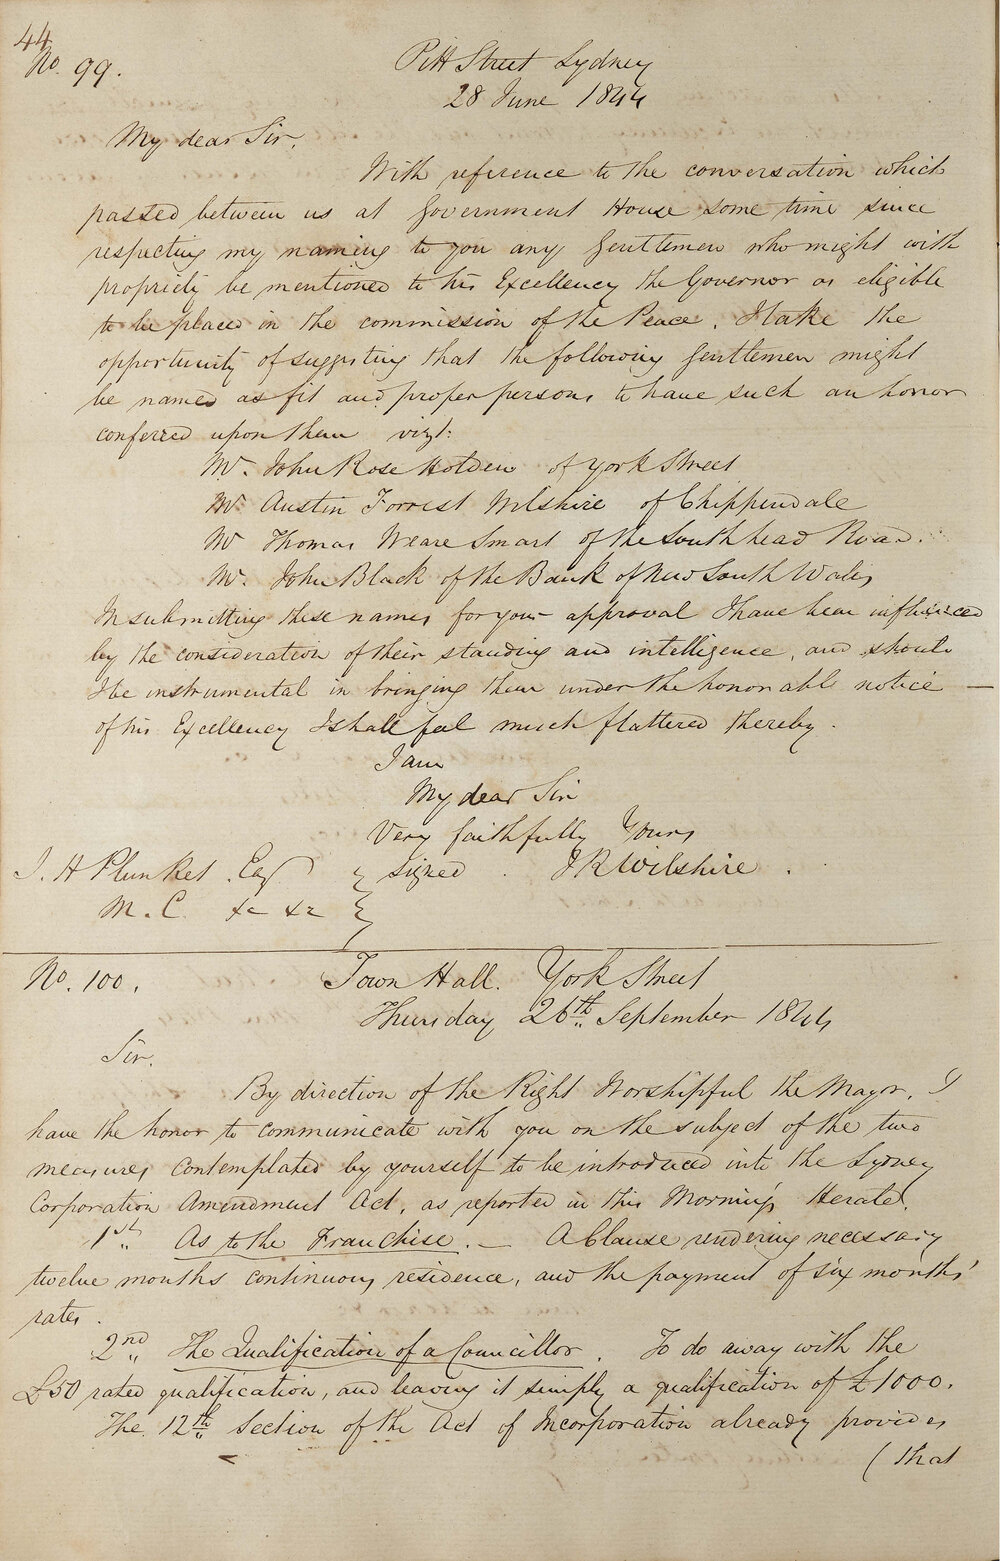 44
No. 99.
Pitt Street Sydney
28 June 1844
My dear Sir.
With reference to the conversation which
passed between us at Government House some time since
respecting my naming to you any Gentlemen who might with
propriety be mentioned to his Excellency the Governor as eligible
to be placed in the commission of the Peace. I take the
opportunity of suggesting that the following Gentlemen might
be named as fit and proper persons to have such an honor
conferred upon them vizt:
Mr. John Rose Holden of York Street
Mr Austin Forrest Wilshire of Chippendale
Mr Thomas Weare Smart of the South head Road.
Mr. John Black of the Bank of New South Wales
In submitting these names for your approval I have been influenced
by the consideration of their standing and intelligence, and should
I be instrumental in bringing them under the honorable notice —
of his Excellency I shall feel much flattered thereby.
I am
My dear Sir
Very faithfully Yours
J. H Plunket Esq } signed J R Wilshire.
M. C. &c &c }
No. 100.
Town Hall. York Street
Thursday 26th September 1844
Sir.
By direction of the Right Worshipful the Mayor, I
have the honor to communicate with you on the subject of the two
measures contemplated by yourself to be introduced into the Sydney
Corporation Amendment Act, as reported in this Morning's Herald.
1st As to the Franchise. — A Clause rendering necessary
twelve months continuous residence, and the payment of six months'
rates.
2nd The Qualification of a Councillor. To do away with the
£50 rated qualification, and leaving it simply a qualification of £1000.
The 12th Section of the Act of Incorporation already provides
(that